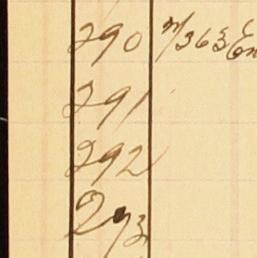 290 n/363 En
291
292
293